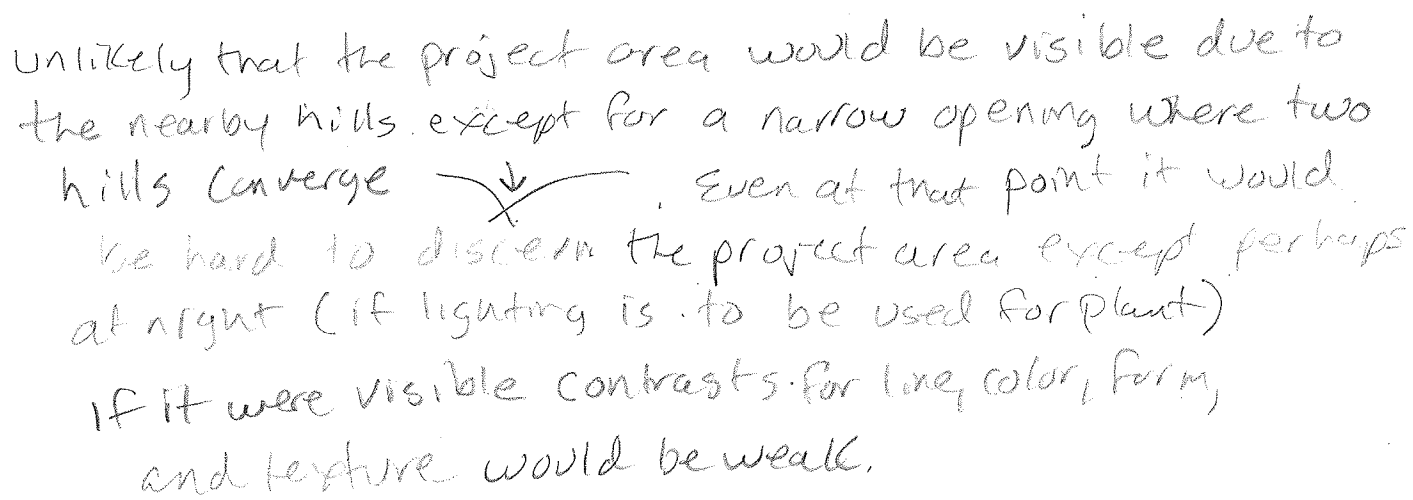 unlikely that the project area would be visible due to
the nearby hills except for a narrow opening where two
hills converge . Even at that point it would
be hard to discern the project area except perhaps
at night (if lighting is to be used for plant)
If it were visible contrasts for line, color, form,
and texture would be weak.